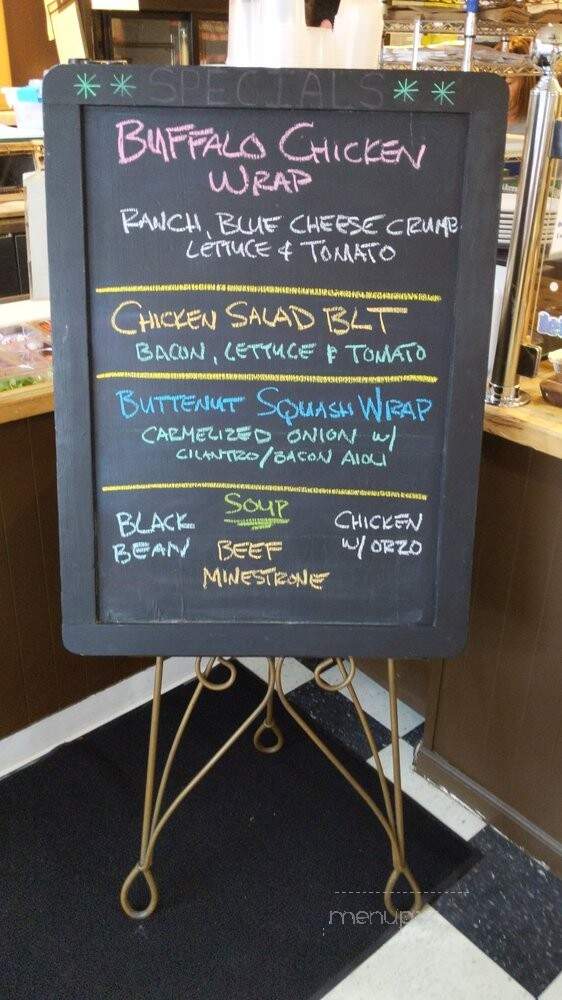 ** SPECIALS **
BUFFALO CHICKEN
WRAP
RANCH, BLUE CHEESE CRUMB.
LETTUCE & TOMATO
CHICKEN SALAD BLT
BACON, LETTUCE & TOMATO
BUTTENUT SQUASH WRAP
CARMELIZED ONION W/
CILANTRO/BACON AIOLI
SOUP
BLACK
BEAN
BEEF
MINESTRONE
CHICKEN
W/ ORZO
menup